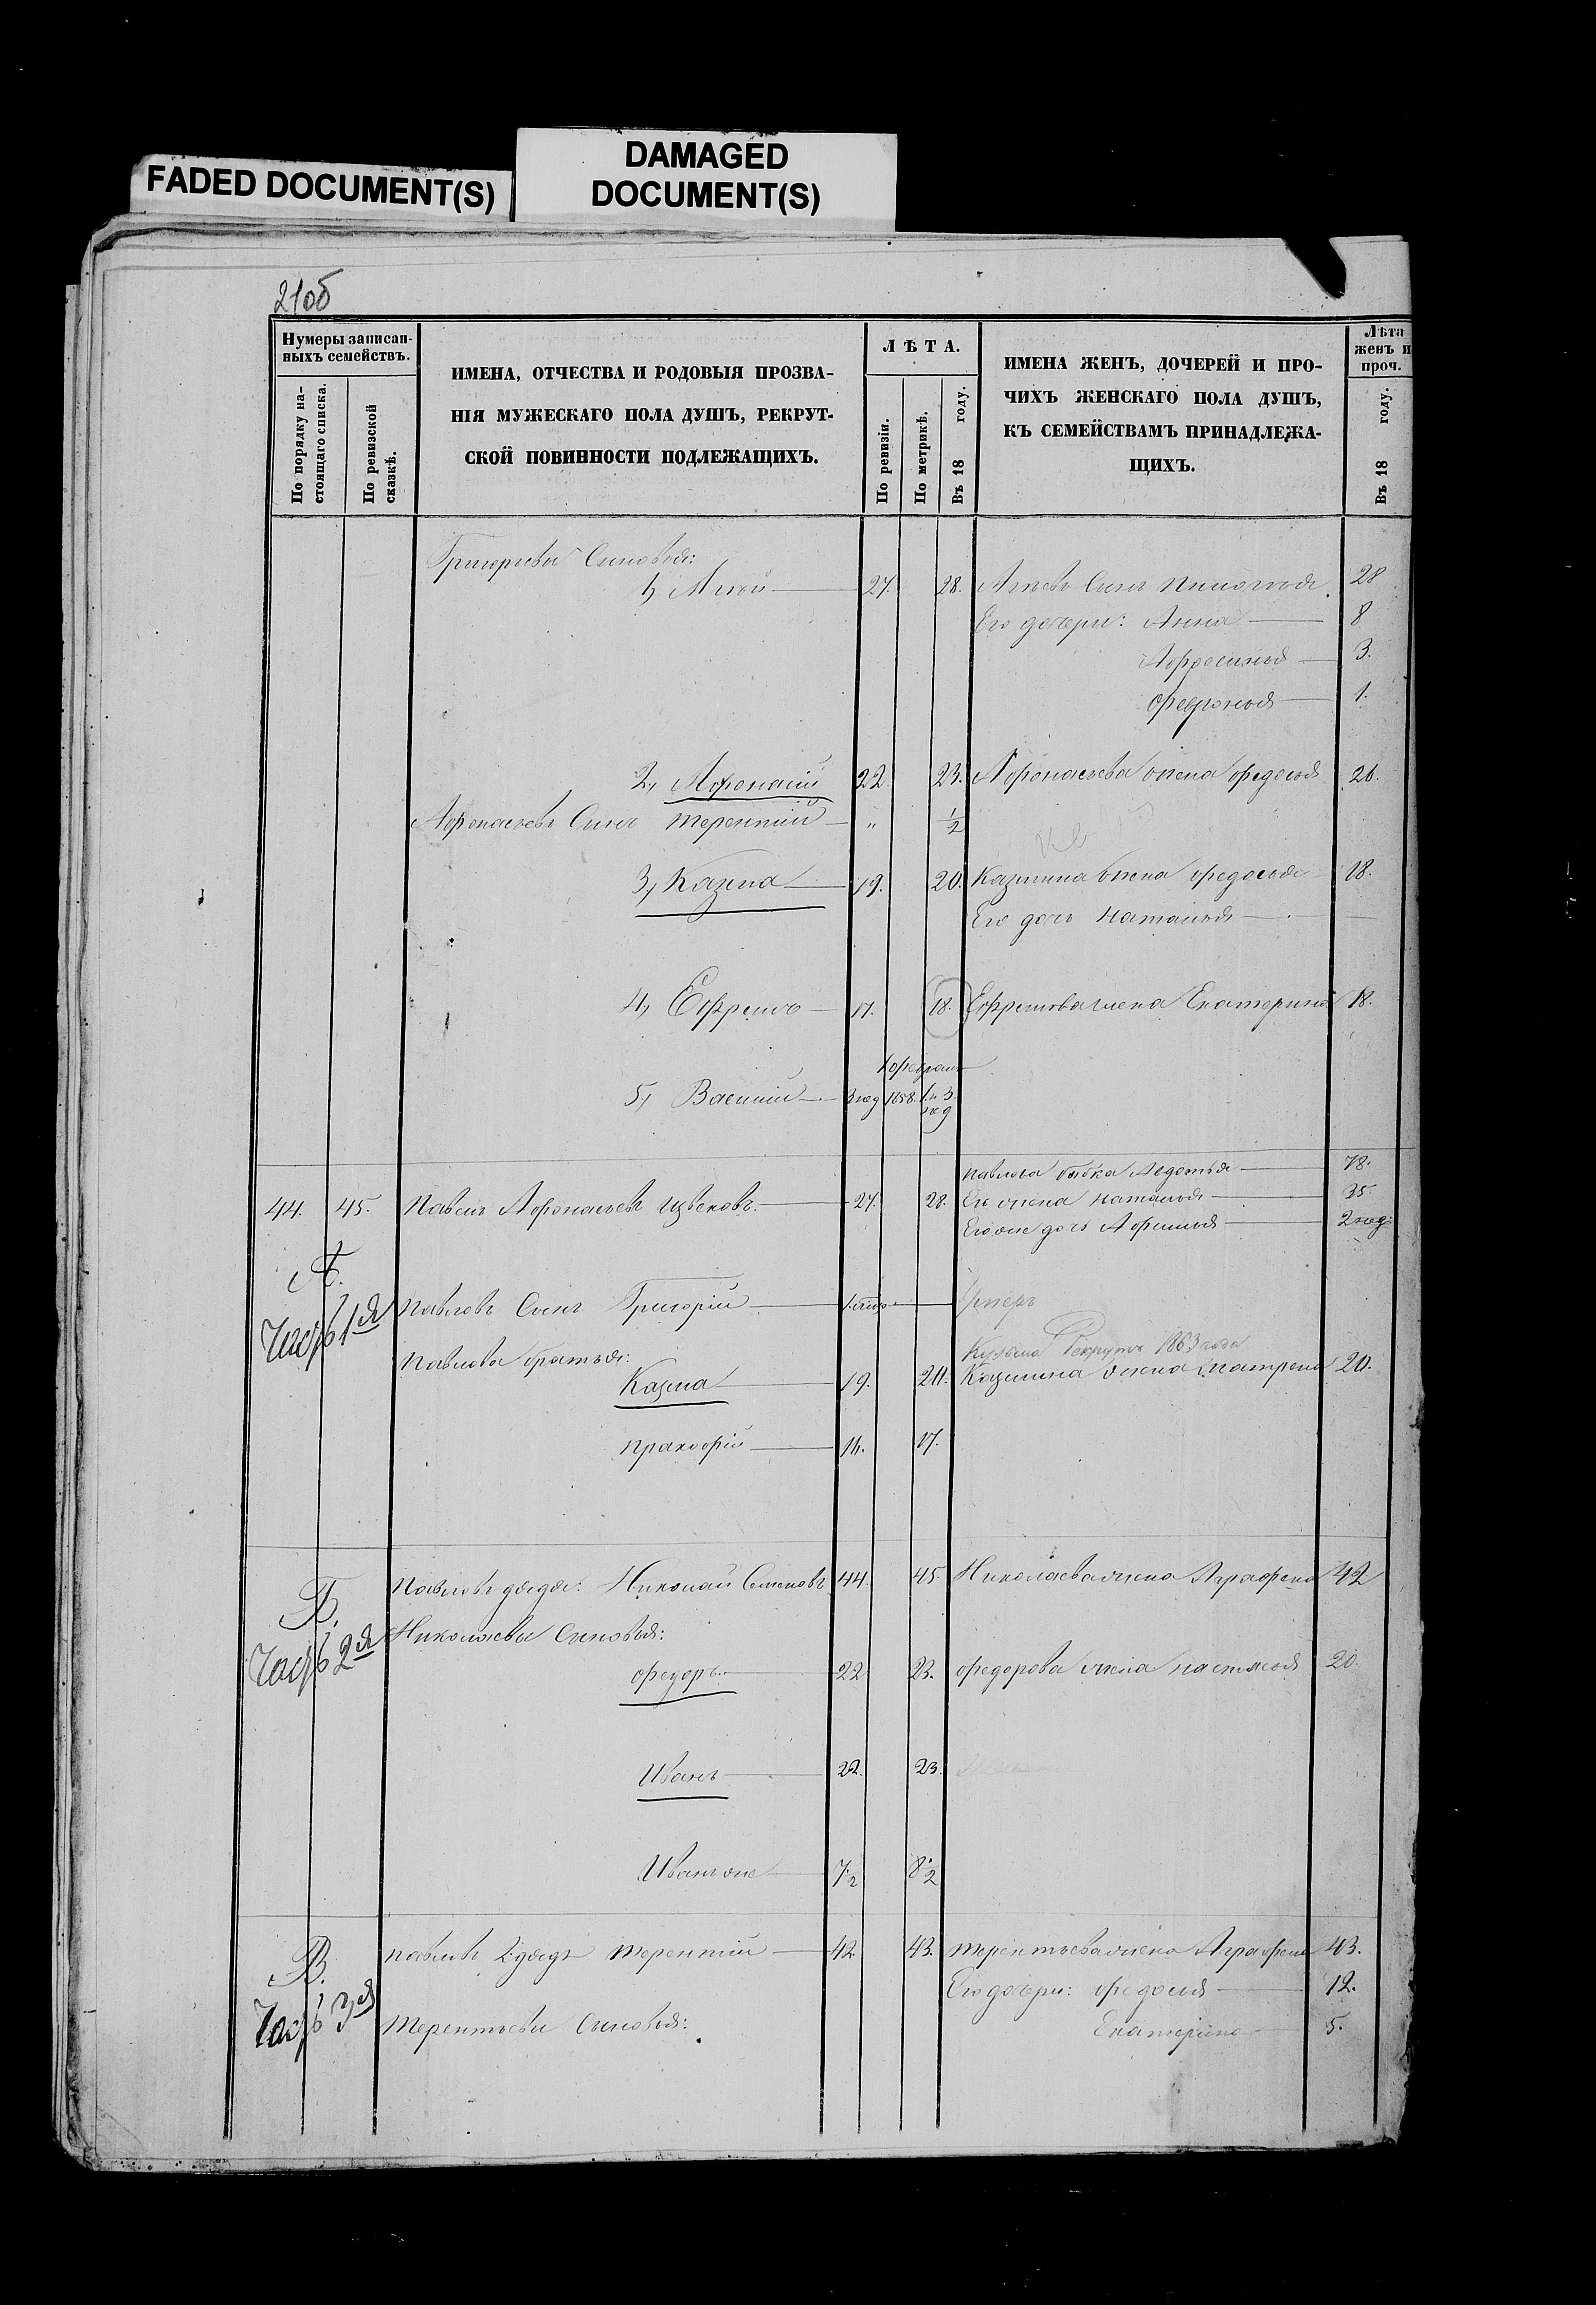 FADED DOCUMENT(S)
DAMAGED
DOCUMENT(S)
210б
Нумеры записан-
ныхъ семействъ.
По порядку на-
стоящаго списка.
По ревизской
сказкѣ.
ИМЕНА, ОТЧЕСТВА И РОДОВЫЯ ПРОЗВА-
НІЯ МУЖЕСКАГО ПОЛА ДУШЪ, РЕКРУТ-
СКОЙ ПОВИННОСТИ ПОДЛЕЖАЩИХЪ.
ЛѢТА.
По ревизіи.
По метрикѣ.
Въ 18 году.
ИМЕНА ЖЕНЪ, ДОЧЕРЕЙ И ПРО-
ЧИХЪ ЖЕНСКАГО ПОЛА ДУШЪ,
КЪ СЕМЕЙСТВАМЪ ПРИНАДЛЕЖА-
ЩИХЪ.
Лѣта
женъ и
проч.
Въ 18 году.
Григорьевы Сыновья:
1, 27. 28. 28
Его дочери: Анна 8
Афросинья 3.
Февронья 1.
2, Афонасій 22 23. Афонасьева жена Федосья 26.
Афонасьевъ Сынъ Терентій " 1/2
3, Казма 19. 20. Казмина жена Федосья 18.
Его дочь Наталья
4, Ефремъ 17. 18. Ефремова жена Екатерина 18.
5, Василій 3 нед 1858.
44. 45. Павелъ Афонасьевъ 27. 28.
Павлова бабка Авдотья 78.
Его жена Наталья 35.
Его же дочь Афимья 2 нед.
А.
Часть 1я
Павловъ Сынъ Григорій умеръ
Павловы братья:
Кузьма Рекрутъ 1863 года
Казма 19. 20. Казмина жена Матрена 20.
Пракофій 16. 17.
Б.
Часть 2я
Павловъ дядя: Николай Семеновъ 44. 45. Николаева жена Аграфена 42
Николаевы Сыновья:
Федоръ 22 23. Федорова жена Настасья 20.
Иванъ 22. 23.
Иванъ же 7 1/2 8 1/2
В.
Часть 3я
Павловъ 2 дядя Терентій 42. 43. Терентьева жена Аграфена 43.
Его дочери: Федосья 12.
Екатерина 5.
Терентьевы Сыновья: